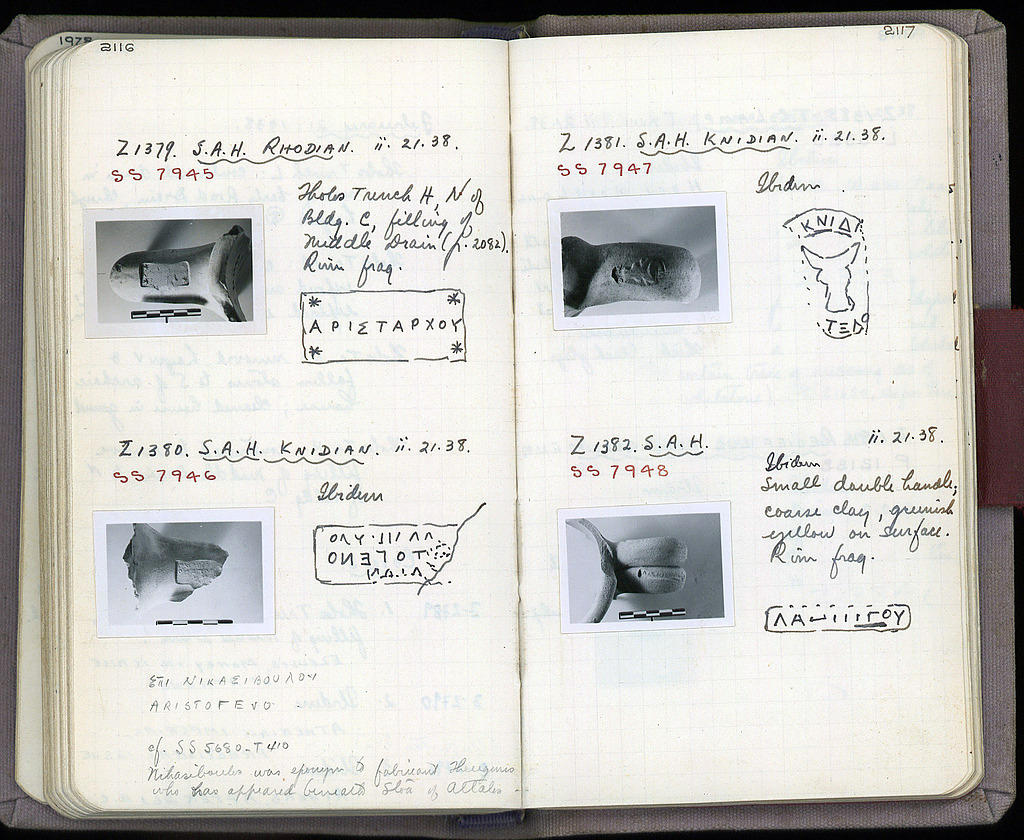 1938
2116
Z 1379. S.A.H. RHODIAN. ii. 21.38.
SS 7945
Tholos Trench H, N of
Bldg. C, filling of
Middle Drain (p. 2082).
Rim frag.
ΑΡΙΣΤΑΡΧΟΥ
Z 1380. S.A.H. KNIDIAN. ii. 21.38.
SS 7946
Ibidem
ΤΟΓΕΝΟ
ΕΠΙ ΝΙΚΑΣΙΒΟΥΛΟΥ
ΑRISΤΟΓΕΝΟ
cf. SS 5680 - T 410
Nikasiboulos was eponym to fabricant Theugenis
who has appeared beneath Stoa of Attalos -
2117
Z 1381. S.A.H. KNIDIAN. ii. 21.38.
SS 7947
Ibidem.
ΚΝΙΔΙ
ΤΞΔ
Z 1382. S.A.H. ii. 21.38.
SS 7948
Ibidem
Small double handle;
coarse clay, greenish
yellow on surface.
Rim frag.
ΓΟΥ